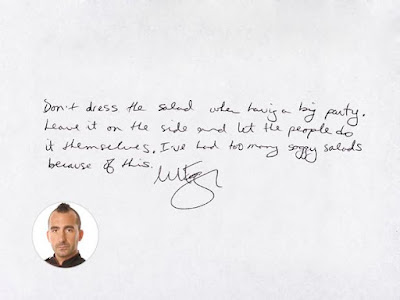 Don't dress the salad when having a big party.
Leave it on the side and let the people do
it themselves. I've had too many soggy salads
because of this.